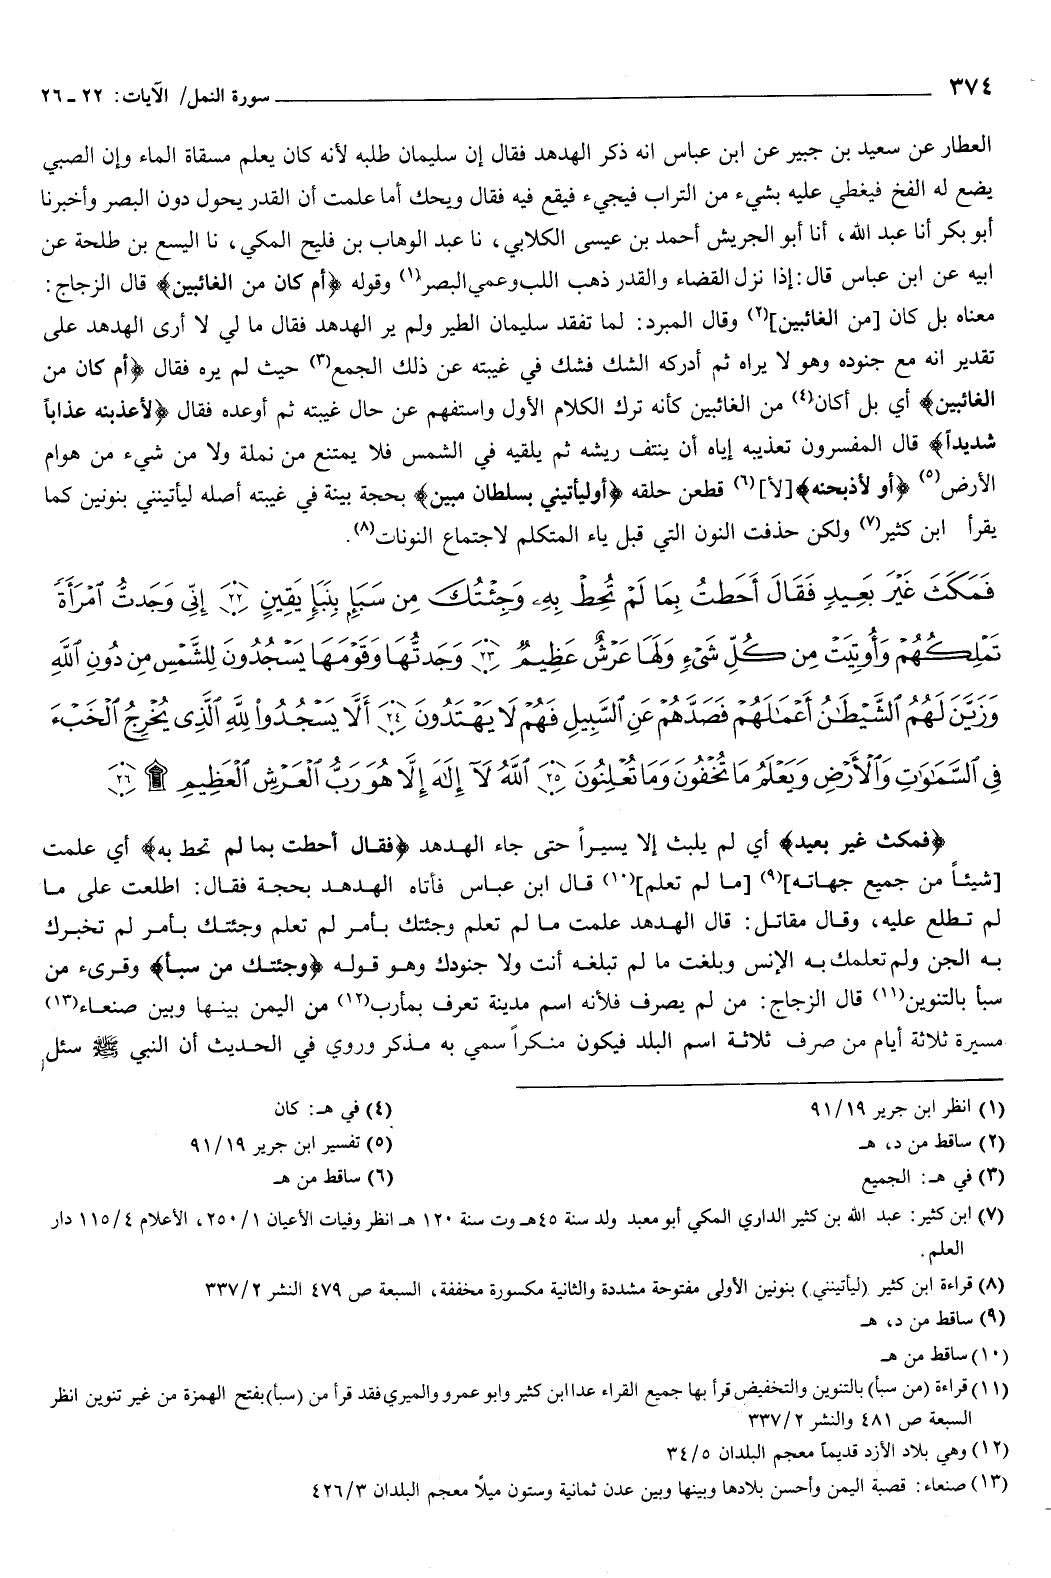 ٣٧٤ سورة النمل/ الآيات: ٢٢ ـ ٢٦
العطار عن سعيد بن جبير عن ابن عباس انه ذكر الهدهد فقال إن سليمان طلبه لأنه كان يعلم مسقاة الماء وإن الصبي
يضع له الفخ فيغطي عليه بشيء من التراب فيجيء فيقع فيه فقال ويحك أما علمت أن القدر يحول دون البصر وأخبرنا
أبو بكر أنا عبد الله، أنا أبو الجريش أحمد بن عيسى الكلابي، نا عبد الوهاب بن فليح المكي، نا اليسع بن طلحة عن
ابيه عن ابن عباس قال: إذا نزل القضاء والقدر ذهب اللب وعمي البصر(١) وقوله ﴿أم كان من الغائبين﴾ قال الزجاج:
معناه بل كان [من الغائبين](٢) وقال المبرد: لما تفقد سليمان الطير ولم ير الهدهد فقال ما لي لا أرى الهدهد على
تقدير انه مع جنوده وهو لا يراه ثم أدركه الشك فشك في غيبته عن ذلك الجمع(٣) حيث لم يره فقال ﴿أم كان من
الغائبين﴾ أي بل أكان(٤) من الغائبين كأنه ترك الكلام الأول واستفهم عن حال غيبته ثم أوعده فقال ﴿لأعذبنه عذاباً
شديداً﴾ قال المفسرون تعذيبه إياه أن ينتف ريشه ثم يلقيه في الشمس فلا يمتنع من نملة ولا من شيء من هوام
الأرض(٥) ﴿أو لأذبحنه﴾[لأ](٦) قطعن حلقه ﴿أوليأتيني بسلطان مبين﴾ بحجة بينة في غيبته أصله ليأتينني بنونين كما
يقرأ ابن كثير(٧) ولكن حذفت النون التي قبل ياء المتكلم لاجتماع النونات(٨).
فَمَكَثَ غَيْرَ بَعِيدٍ فَقَالَ أَحَطتُ بِمَا لَمْ تُحِطْ بِهِۦ وَجِئْتُكَ مِن سَبَإٍ بِنَبَإٍ يَقِينٍ ٢٢ إِنِّي وَجَدتُّ ٱمْرَأَةً
تَمْلِكُهُمْ وَأُوتِيَتْ مِن كُلِّ شَيْءٍ وَلَهَا عَرْشٌ عَظِيمٌ ٢٣ وَجَدتُّهَا وَقَوْمَهَا يَسْجُدُونَ لِلشَّمْسِ مِن دُونِ ٱللَّهِ
وَزَيَّنَ لَهُمُ ٱلشَّيْطَٰنُ أَعْمَٰلَهُمْ فَصَدَّهُمْ عَنِ ٱلسَّبِيلِ فَهُمْ لَا يَهْتَدُونَ ٢٤ أَلَّا يَسْجُدُوا۟ لِلَّهِ ٱلَّذِى يُخْرِجُ ٱلْخَبْءَ
فِى ٱلسَّمَٰوَٰتِ وَٱلْأَرْضِ وَيَعْلَمُ مَا تُخْفُونَ وَمَا تُعْلِنُونَ ٢٥ ٱللَّهُ لَآ إِلَٰهَ إِلَّا هُوَ رَبُّ ٱلْعَرْشِ ٱلْعَظِيمِ ۩ ٢٦
﴿فمكث غير بعيد﴾ أي لم يلبث إلا يسيراً حتى جاء الهدهد ﴿فقال أحطت بما لم تحط به﴾ أي علمت
[شيئاً من جميع جهاته](٩) [ما لم تعلم](١٠) قال ابن عباس فأتاه الهدهد بحجة فقال: اطلعت على ما
لم تطلع عليه، وقال مقاتل: قال الهدهد علمت ما لم تعلم وجئتك بأمر لم تعلم وجئتك بأمر لم تخبرك
به الجن ولم تعلمك به الإنس وبلغت ما لم تبلغه أنت ولا جنودك وهو قوله ﴿وجئتك من سبأ﴾ وقرىء من
سبأ بالتنوين(١١) قال الزجاج: من لم يصرف فلأنه اسم مدينة تعرف بمأرب(١٢) من اليمن بينها وبين صنعاء(١٣)
مسيرة ثلاثة أيام من صرف ثلاثة اسم البلد فيكون منكراً سمي به مذكر وروي في الحديث أن النبي ﷺ سئل
(١) انظر ابن جرير ٩١/١٩
(٢) ساقط من د، هـ
(٣) في هـ: الجميع
(٤) في هـ: كان
(٥) تفسير ابن جرير ٩١/١٩
(٦) ساقط من هـ
(٧) ابن كثير: عبد الله بن كثير الداري المكي أبو معبد ولد سنة ٤٥هـ وت سنة ١٢٠ هـ انظر وفيات الأعيان ٢٥٠/١، الأعلام ١١٥/٤ دار
العلم.
(٨) قراءة ابن كثير (ليأتينني) بنونين الأولى مفتوحة مشددة والثانية مكسورة مخففة، السبعة ص ٤٧٩ النشر ٣٣٧/٢
(٩) ساقط من د، هـ
(١٠) ساقط من هـ
(١١) قراءة (من سبأ) بالتنوين والتخفيض قرأ بها جميع القراء عدا ابن كثير وابو عمرو والميري فقد قرأ من (سبأ) بفتح الهمزة من غير تنوين انظر
السبعة ص ٤٨١ والنشر ٣٣٧/٢
(١٢) وهي بلاد الأزد قديماً معجم البلدان ٣٤/٥
(١٣) صنعاء: قصبة اليمن وأحسن بلادها وبينها وبين عدن ثمانية وستون ميلاً معجم البلدان ٤٢٦/٣